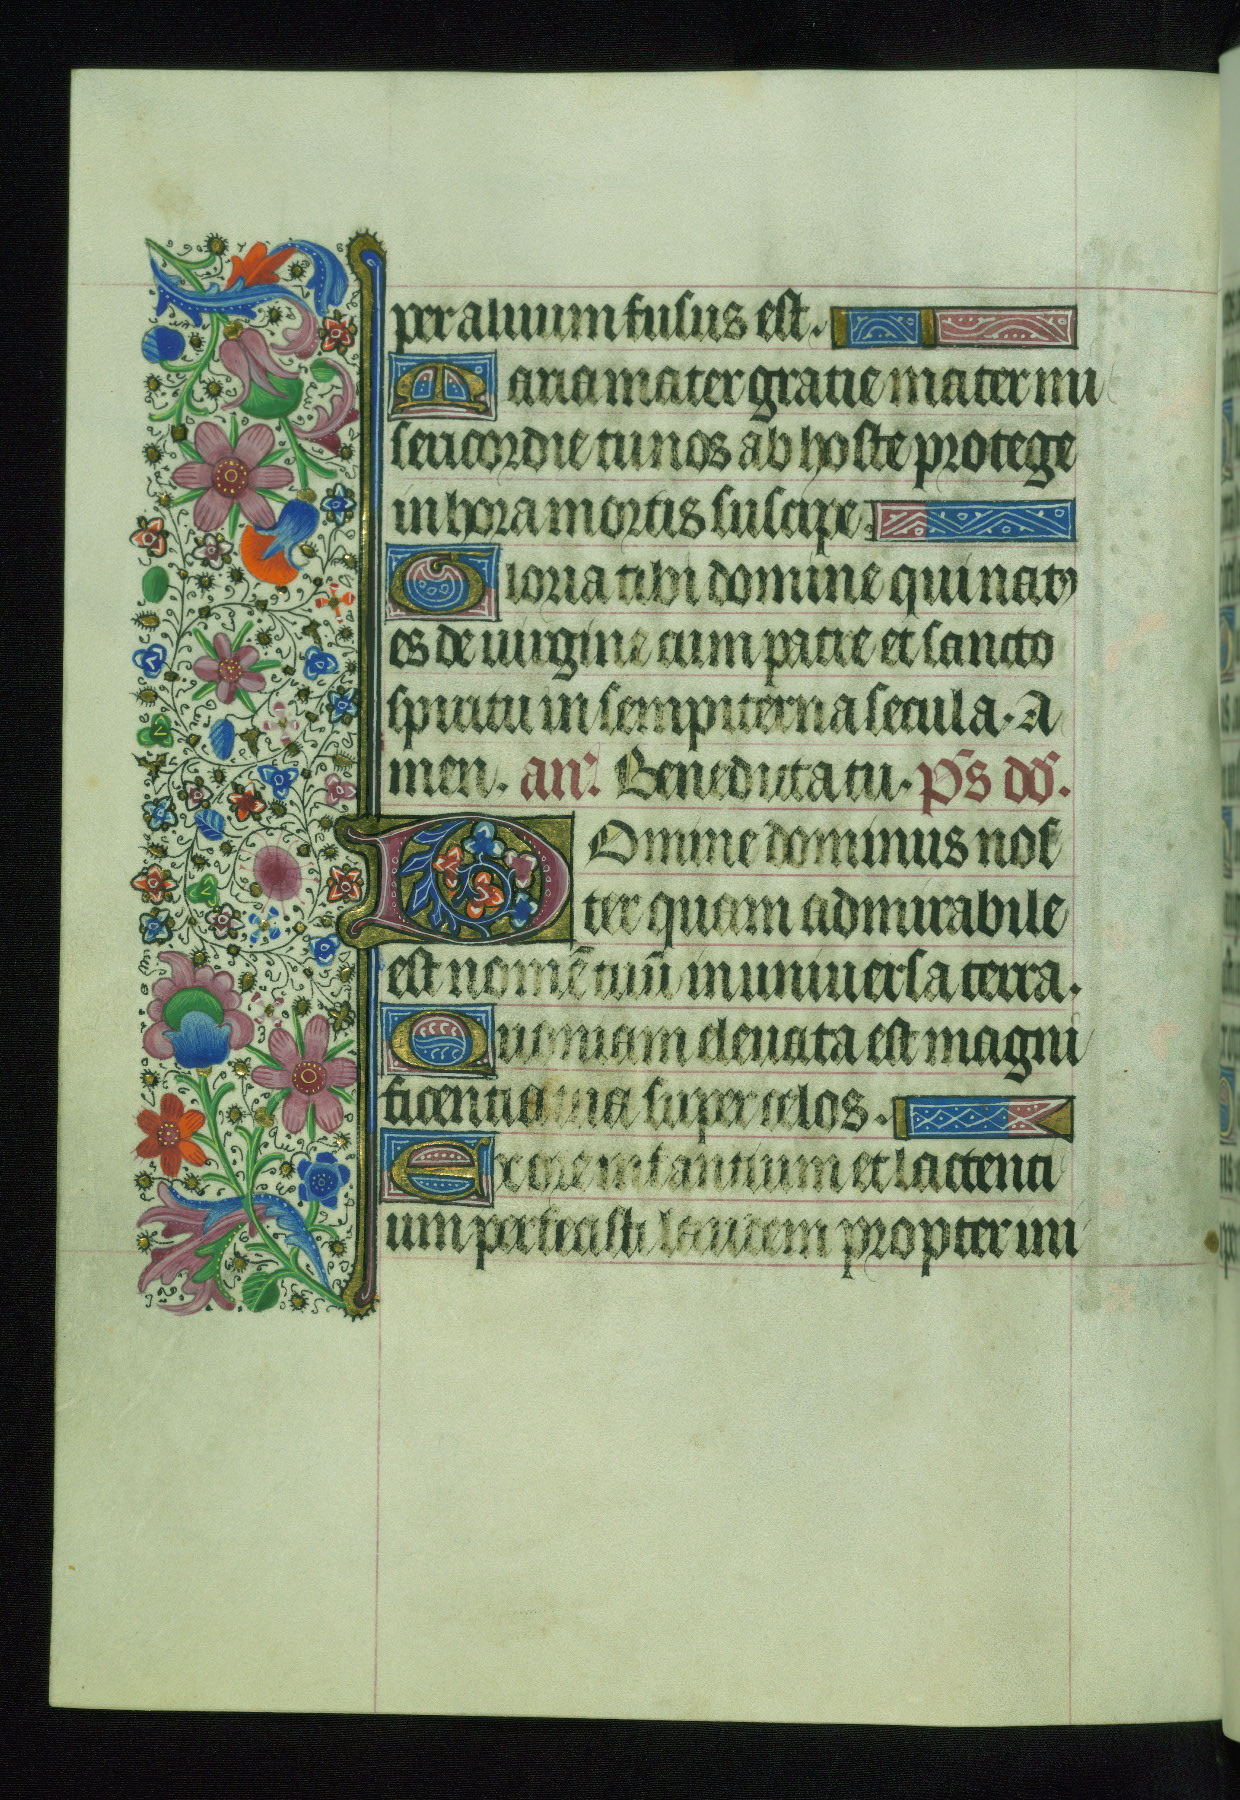 per aluum fusus est.
Maria mater gratie mater mi
sericordie tu nos ab hoste protege
in hora mortis suscipe.
Gloria tibi domine qui natꝯ
es de uirgine cum patre et sancto
spiritu in sempiterna secula. A
men. an̄. Benedicta tu. p̄s dd̄.
Domine dominus nos
ter quam admirabile
est nomē tuū in uniuersa terra.
Quoniam eleuata est magni
ficentia tua super celos.
Ex ore infantium et lactenti
um perfecisti laudem propter ini